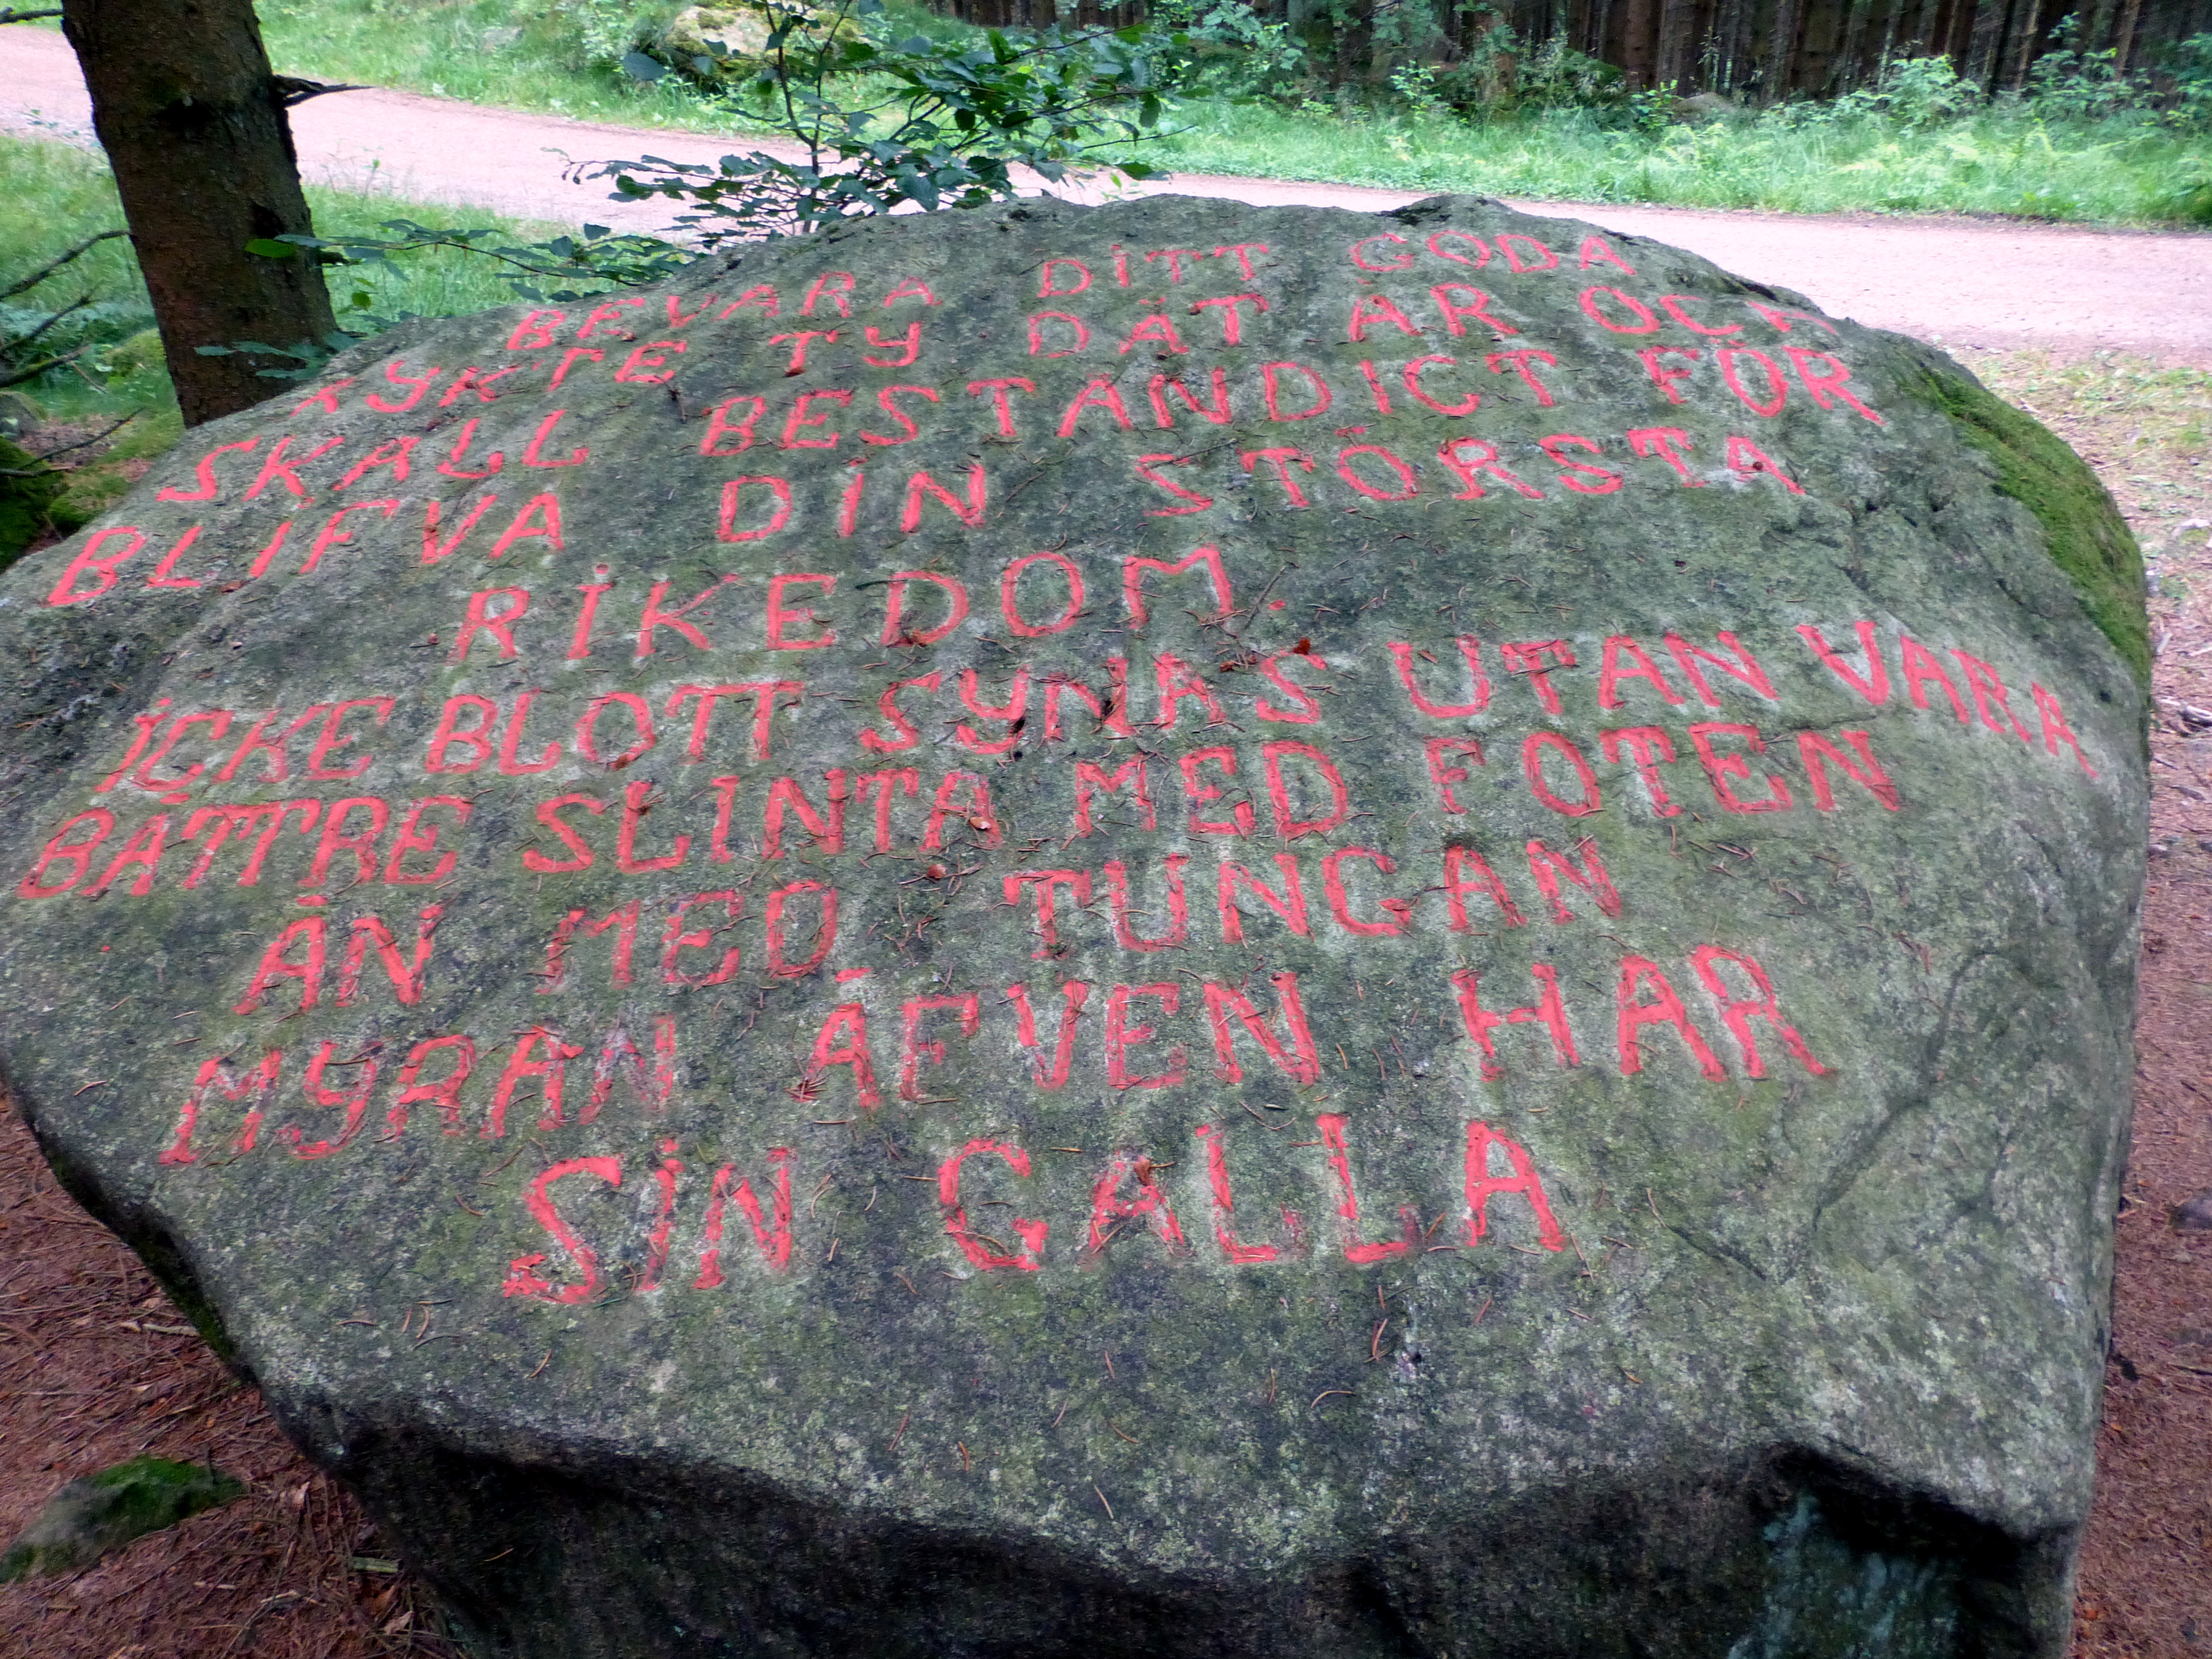 BEVARA DITT GODA
RYKTE TY DÄT ÄR OCH
SKALL BESTÄNDIGT FÖR
BLIFVA DIN STÖRSTA
RIKEDOM.
ICKE BLOTT SYNAS UTAN VARA
BÄTTRE SLINTA MED FOTEN
ÄN MED TUNGAN
MYRAN ÄFVEN HAR
SIN GALLA